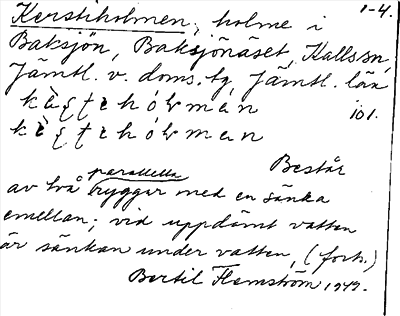 1-4.
Kerstiholmen, holme i
Baksjön, Baksjönäset, Kallssn,
Jämtl. v. doms. tg, Jämtl. län
101.
Består
av två parallella ryggar med en sänka
emellan; vid uppdämt vatten
är sänkan under vatten, (forts.)
Bertil Flemström 1949.